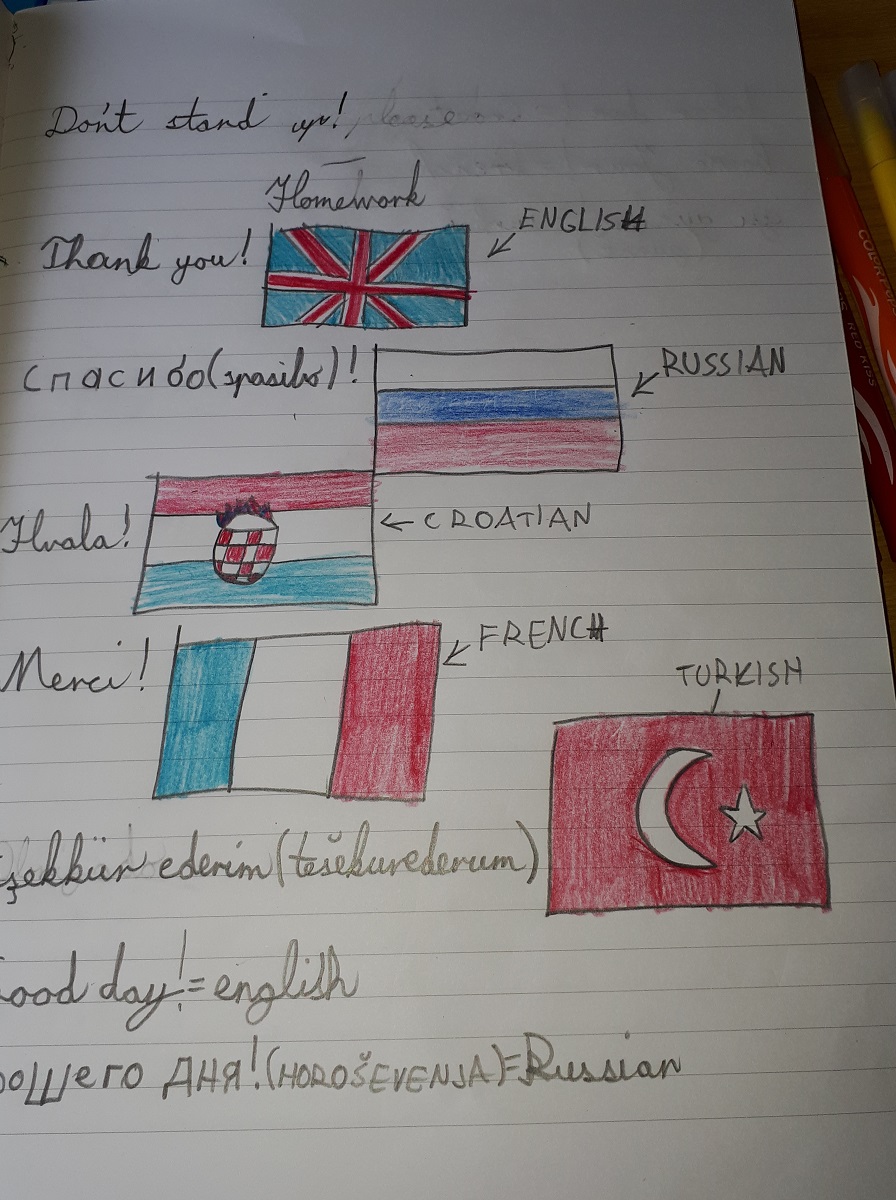 Don't stand up!, please
Homework
Thank you! ENGLISH
Спасибо(spasibo)! RUSSIAN
Hvala! CROATIAN
Merci! FRENCH
TURKISH
şekkür ederim (tešekurederum)
ood day! = english
ошего дня! (HOROŠEVENJA)=Russian